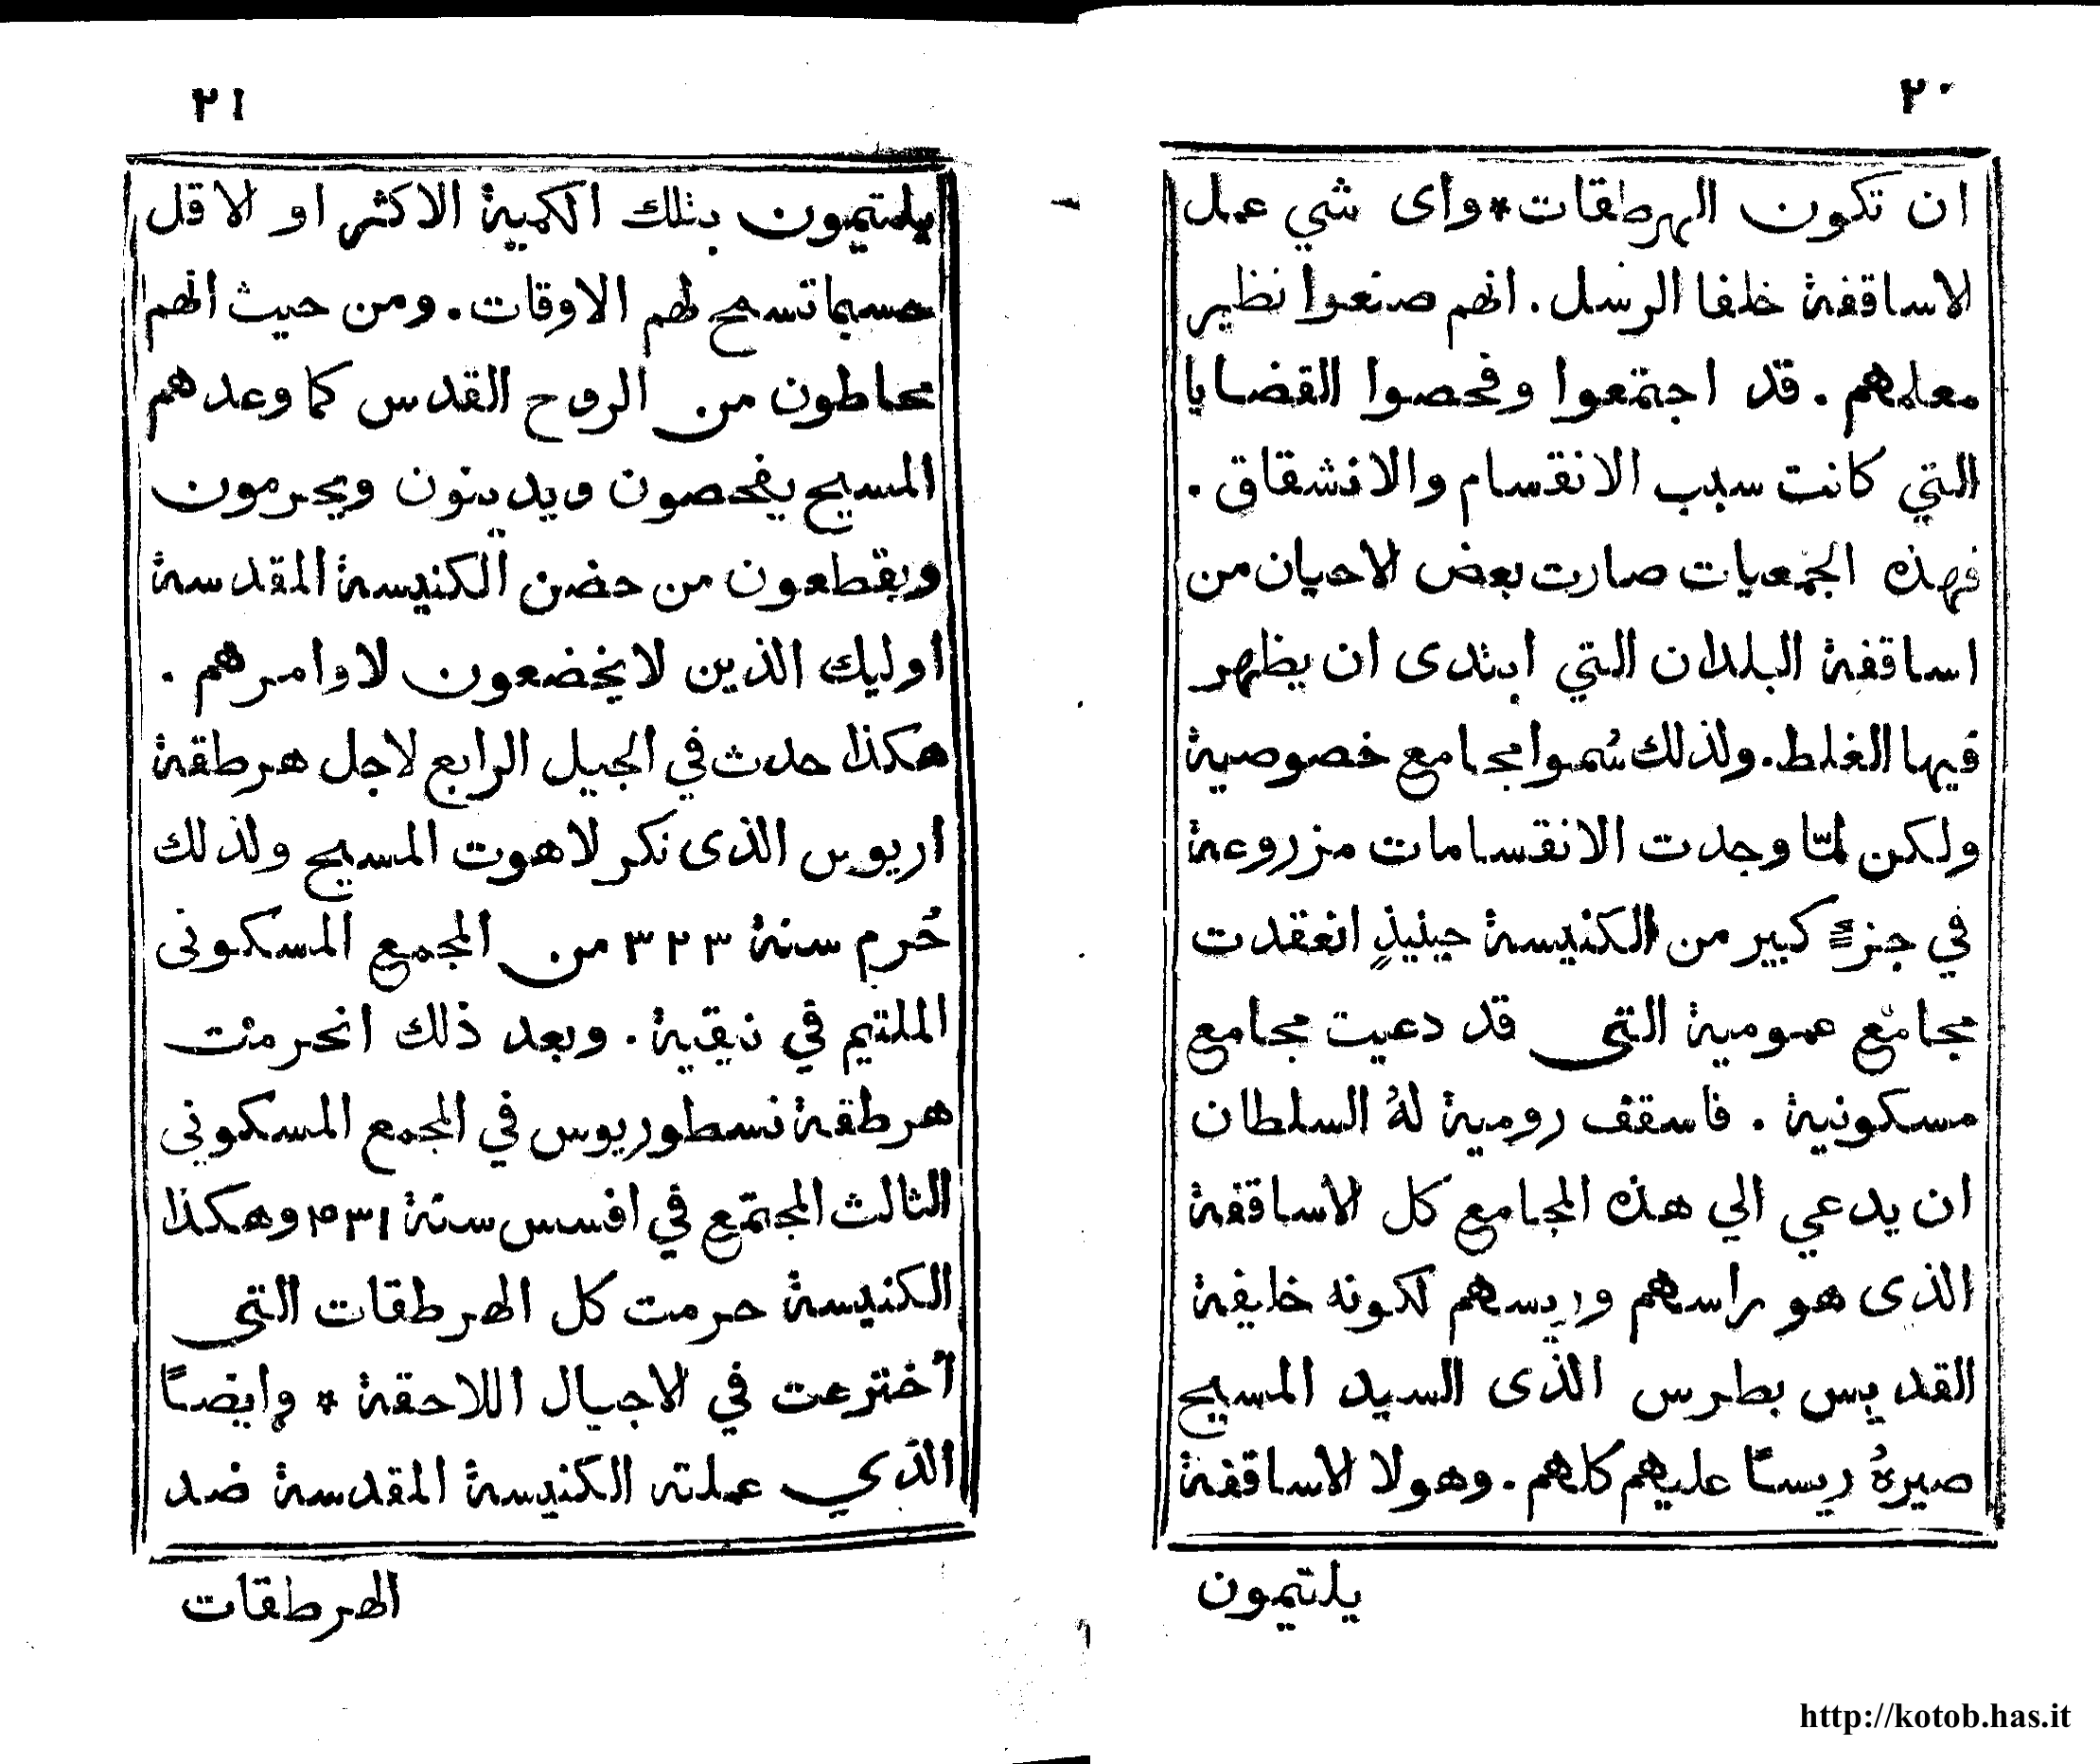 ٢٠
ان تكون الهرطقات * واى شي عمل
الاساقفة خلفا الرسل . انهم صنعوا نظير
معلمهم . قد اجتمعوا وفحصوا القضايا
التي كانت سبب الانقسام والانشقاق .
فهذه الجمعيات صارت بعض الاحيان من
اساقفة البلدان التي ابتدى ان يظهر
فيها الغلط . ولذلك سُموا مجامع خصوصية
ولكن لمّا وجدت الانقسامات مزروعة
في جزءٍ كبير من الكنيسة حينيذٍ انعقدت
مجامع عمومية التى قد دعيت مجامع
مسكونية . فاسقف رومية لهُ السلطان
ان يدعي الي هذه المجامع كل الاساقفة
الذى هو راسهم وريسهم لكونه خليفة
القديس بطرس الذى السيد المسيح
صيرهُ ريسًا عليهم كلهم . وهولا الاساقفة
يلتيمون
٢١
يلتيمون بتلك الكمية الاكثر او الاقل
حسبما تسمح لهم الاوقات . ومن حيث انهم
محاطون من الروح القدس كما وعدهم
المسيح يفحصون ويدينون ويحرمون
ويقطعون من حضن الكنيسة المقدسة
اوليك الذين لا يخضعون لاوامرهم .
هكذا حدث في الجيل الرابع لاجل هرطقة
اريوس الذى نكر لاهوت المسيح ولذلك
حُرم سنة ٣٢٣ من المجمع المسكونى
الملتيم في نيقية . وبعد ذلك انحرمت
هرطقة نسطوريوس في المجمع المسكونى
الثالث المجتمع في افسس سنة ٤٣١ وهكذا
الكنيسة حرمت كل الهرطقات التى
اُخترعت في الاجيال اللاحقة * وايضًا
الذي عملته الكنيسة المقدسة ضد
الهرطقات
http://kotob.has.it